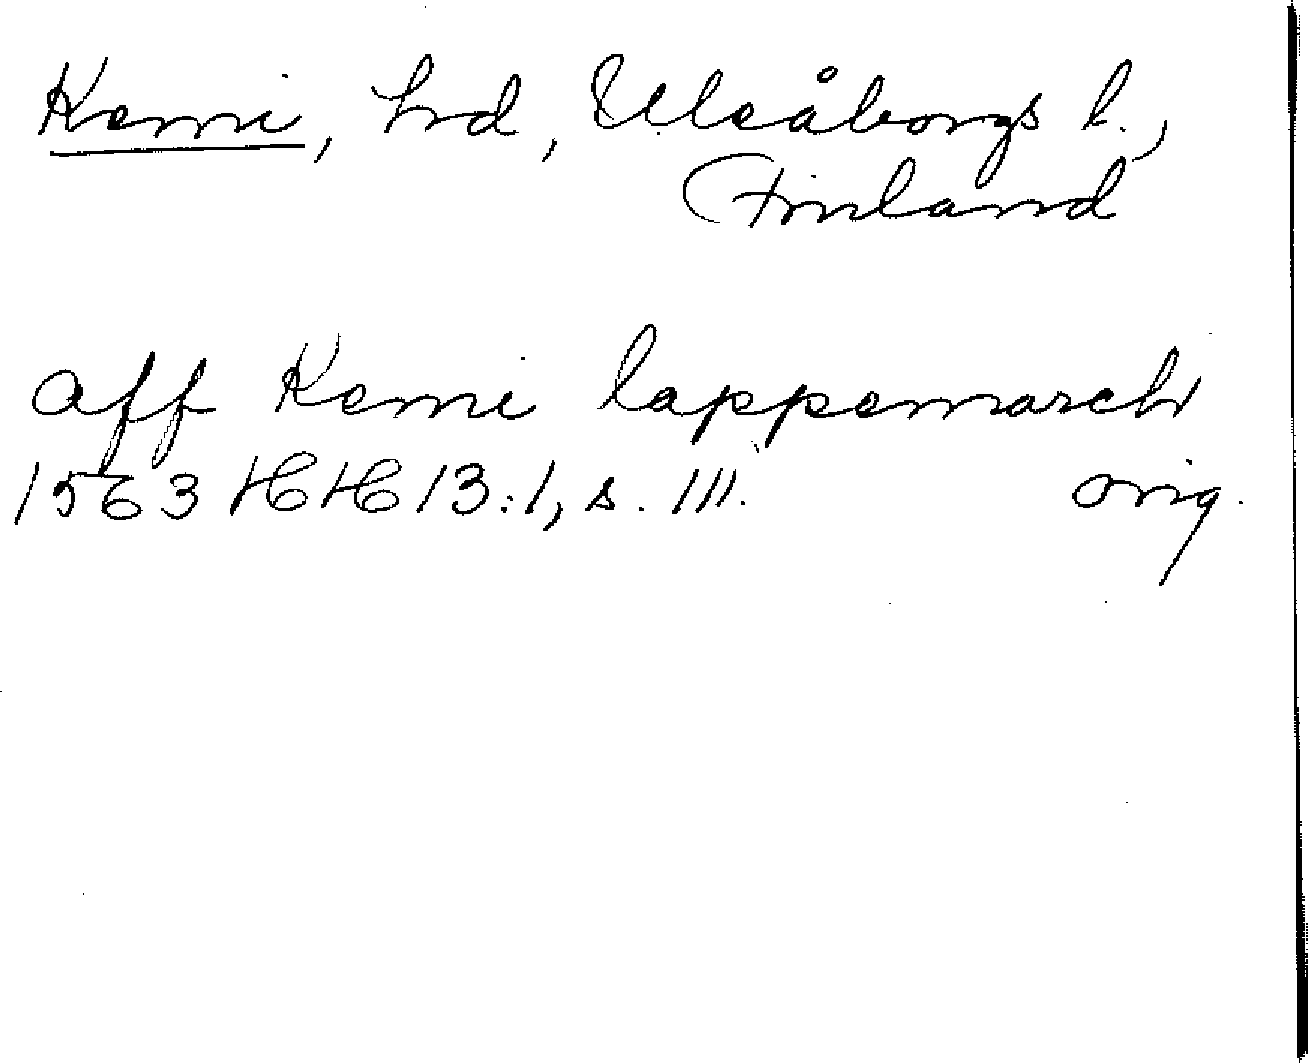 Kemi, hd, Uleåborgs l.,
Finland
aff Kemi lappemarch
1563 HH 13:1, s. 111. orig.